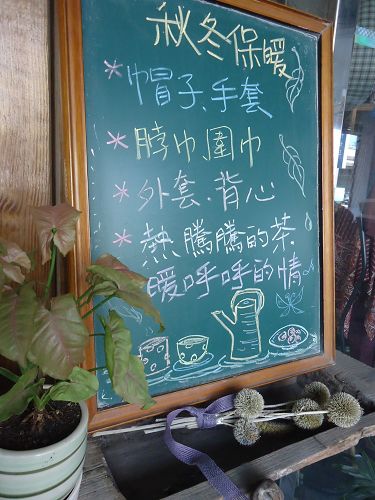 秋冬保暖
*帽子、手套
*脖巾圍巾
*外套、背心
*熱騰騰的茶
暖呼呼的情